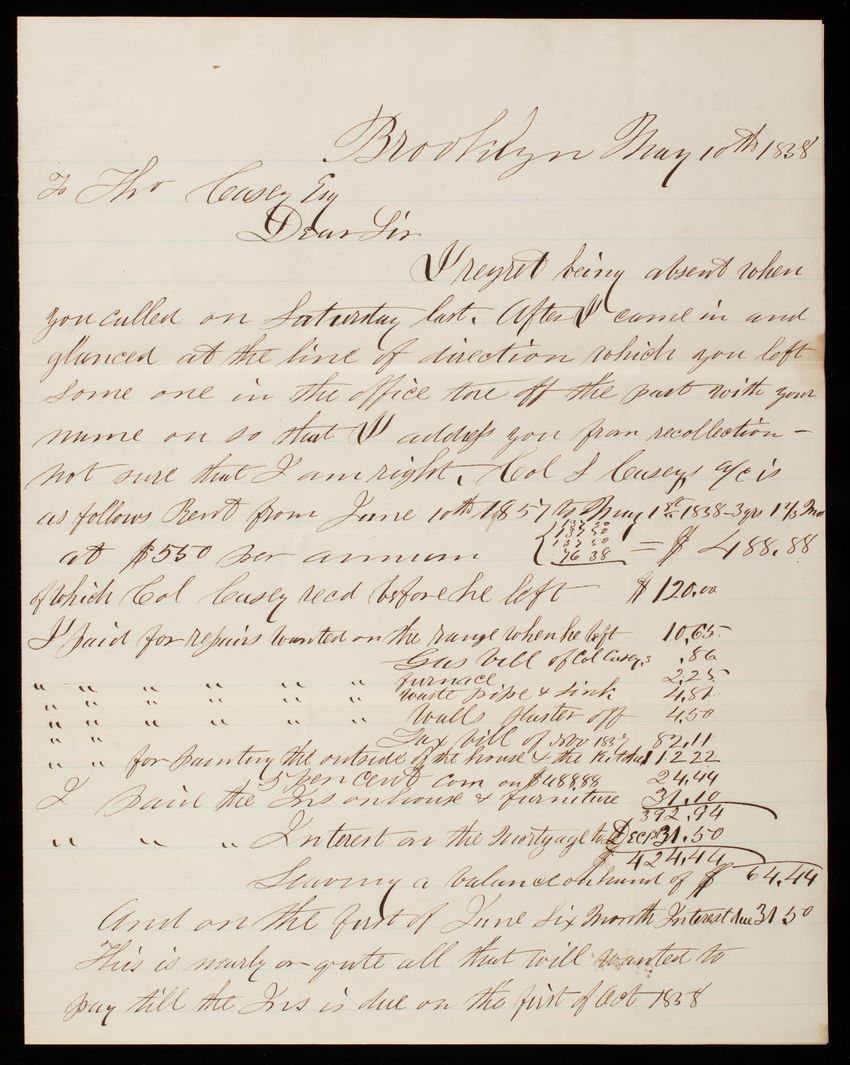 Brooklyn May 10th 1858
To Tho Casey Esq
Dear Sir
I regret being absent when
you called on Saturday last. After I came in and
glanced at the line of direction which you left
some one in the office tore off the part with your
name on so that I address you from recollection –
not sure that I am right. Col S Casey's a/c is
as follows Rent from June 10th 1857 to May 1st 1858 – 3 qrs 1 2/3 Mo
137 50
137 50
137 50
76 38
at $550 per annum = $ 488.88
of which Col Casey recd before he left $120.00
I paid for repairs wanted on the range when he left 10.65
Gas bill of Col Casey's .86
" " " " " " furnace 2.25
" " " " " " waste pipe & sink 4.81
" " " " " " Walls plaster off 4.50
" " Tax bill of Nov 1857 82.11
" " for painting the outside of the house & the Kitchen 112 22
5 per cent com on $488.88 24.44
I paid the Ins on house & furniture 31.10
392.94
" " " Interest on the Mortgage to Decr 31.50
$ 424.44
Leaving a balance on hand of $ 64.44
And on the first of June Six Month Interest due 31 50
This is nearly or quite all that will wanted to
pay till the Ins is due on the first of Oct 1858